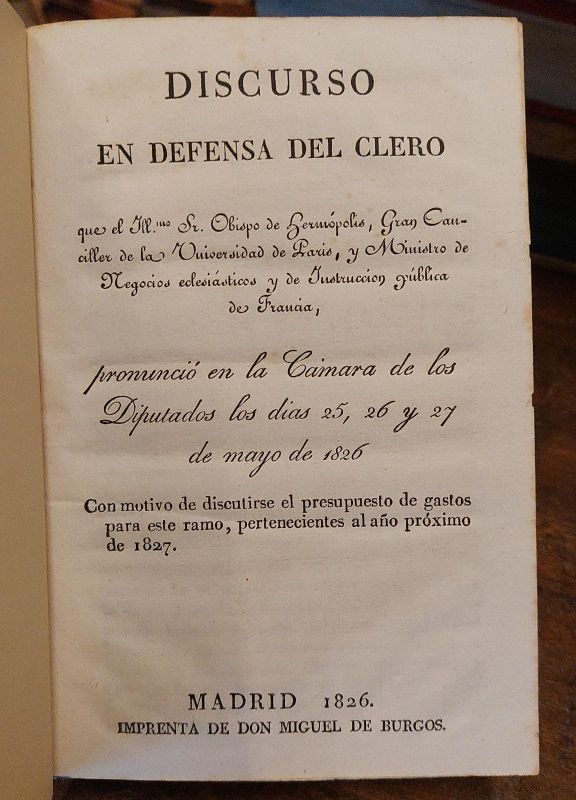 DISCURSO
EN DEFENSA DEL CLERO
que el Ill.mo Sr. Obispo de Hermópolis, Gran Can-
ciller de la Universidad de Paris, y Ministro de
Negocios eclesiásticos y de Instruccion pública
de Francia,
pronunció en la Cámara de los
Diputados los dias 25, 26 y 27
de mayo de 1826
Con motivo de discutirse el presupuesto de gastos
para este ramo, pertenecientes al año próximo
de 1827.
MADRID 1826.
IMPRENTA DE DON MIGUEL DE BURGOS.